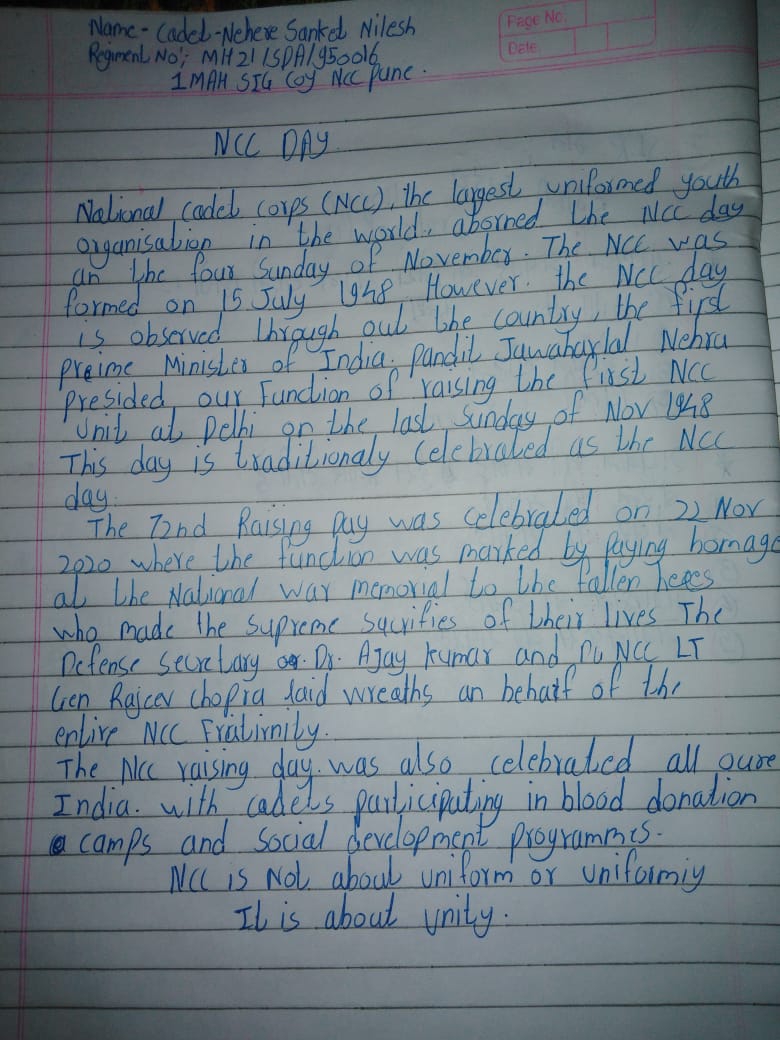 Name - Cadet - Nehere Sanket Nilesh
Page No.
Regiment No:- MH21/SDA/950016
Date
1 MAH SIG Coy NCC Pune.
NCC DAY
National Cadet Corps (NCC), the largest uniformed youth
organisation in the world, aborned the NCC day
an the four Sunday of November. The NCC was
formed on 15 July 1948. However. the NCC day
is observed through out the country, the first
preime Minister of India. Pandit Jawaharlal Nehru
presided our Function of raising the first NCC
Unit at Delhi on the last Sunday of Nov 1948
This day is traditionaly Celebrated as the NCC
day.
The 72nd Raising Day was celebrated on 22 Nov
2020 where the function was marked by Paying homage
at the National War memorial to the fallen heroes
who made the supreme sacrifies of their lives The
Defense Secretary Dr. Ajay Kumar and NCC LT
Gen Rajeev Chopra laid wreaths an behalf of the
entire NCC Fratirnity.
The NCC raising day. was also celebrated all oure
India. with cadets participating in blood donation
camps and social development programmes.
NCC is Not about uniform or uniformiy
It is about unity.